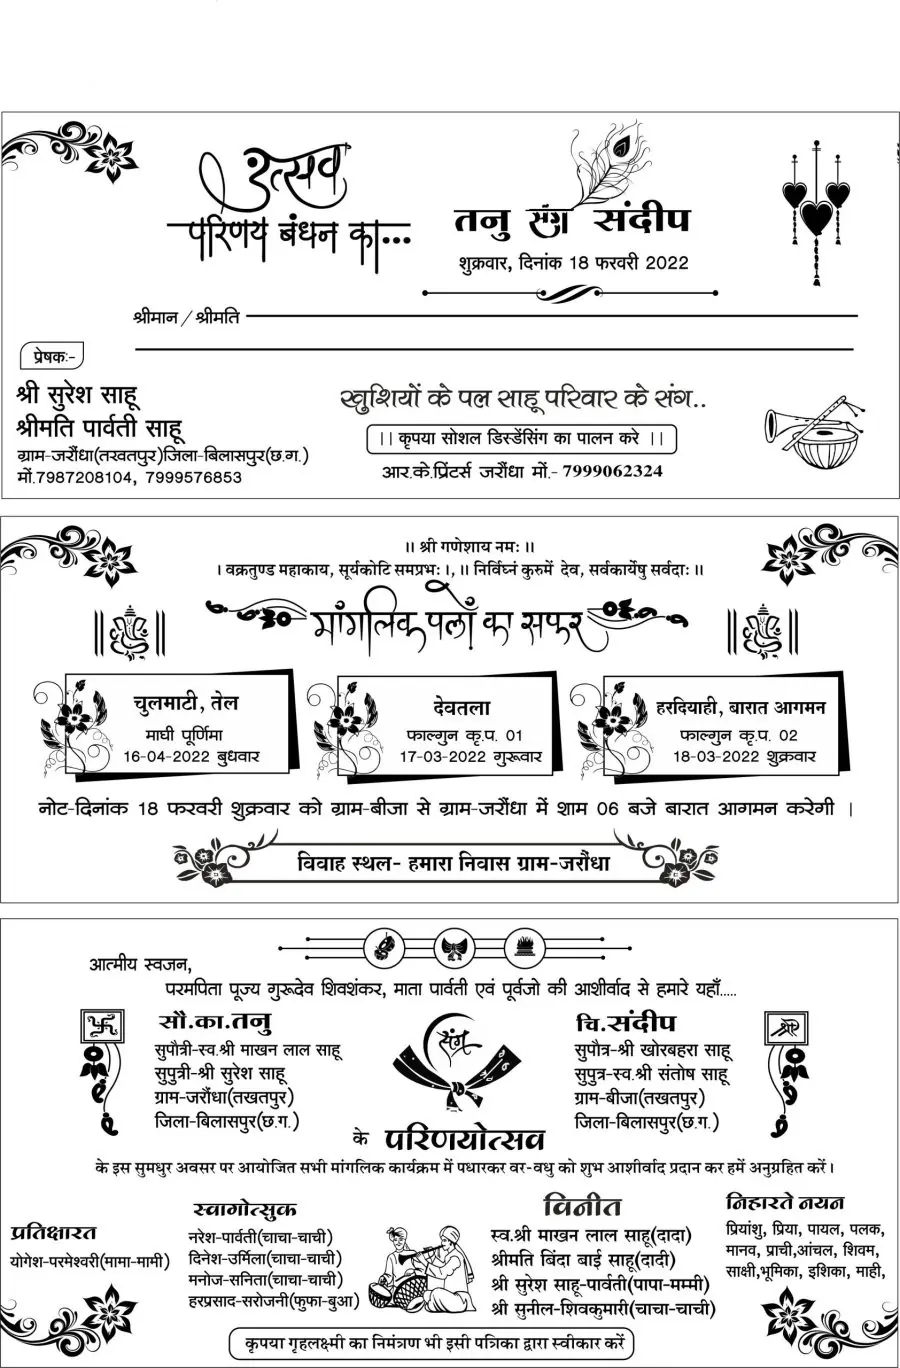 उत्सव
परिणय बंधन का...
तनु संग संदीप
शुक्रवार, दिनांक 18 फरवरी 2022
श्रीमान / श्रीमति
प्रेषकः-
श्री सुरेश साहू
श्रीमति पार्वती साहू
ग्राम-जरौंधा(तखतपुर)जिला-बिलासपुर(छ.ग.)
मों.7987208104, 7999576853
खुशियों के पल साहू परिवार के संग..
।। कृपया सोशल डिस्डेंसिंग का पालन करे ।।
आर.के.प्रिंटर्स जरौंधा मों.- 7999062324
।। श्री गणेशाय नमः ।।
। वक्रतुण्ड महाकाय, सूर्यकोटि समप्रभः ।, ।। निर्विघ्नं कुरुमें देव, सर्वकार्येषु सर्वदाः ।।
मांगलिक पलों का सफर
चुलमाटी, तेल
माघी पूर्णिमा
16-04-2022 बुधवार
देवतला
फाल्गुन कृ.प. 01
17-03-2022 गुरूवार
हरदियाही, बारात आगमन
फाल्गुन कृ.प. 02
18-03-2022 शुक्रवार
नोट-दिनांक 18 फरवरी शुक्रवार को ग्राम-बीजा से ग्राम-जरौंधा में शाम 06 बजे बारात आगमन करेगी ।
विवाह स्थल- हमारा निवास ग्राम-जरौंधा
आत्मीय स्वजन,
परमपिता पूज्य गुरूदेव शिवशंकर, माता पार्वती एवं पूर्वजो की आशीर्वाद से हमारे यहाँ.....
सौ.का.तनु
सुपौत्री-स्व.श्री माखन लाल साहू
सुपुत्री-श्री सुरेश साहू
ग्राम-जरौंधा(तखतपुर)
जिला-बिलासपुर(छ.ग.)
संग
चि.संदीप
सुपौत्र-श्री खोरबहरा साहू
सुपुत्र-स्व.श्री संतोष साहू
ग्राम-बीजा(तखतपुर)
जिला-बिलासपुर(छ.ग.)
श्री
के परिणयोत्सव
के इस सुमधुर अवसर पर आयोजित सभी मांगलिक कार्यक्रम में पधारकर वर-वधु को शुभ आशीर्वाद प्रदान कर हमें अनुग्रहित करें।
प्रतिक्षारत
योगेश-परमेश्वरी(मामा-मामी)
स्वागोत्सुक
नरेश-पार्वती(चाचा-चाची)
दिनेश-उर्मिला(चाचा-चाची)
मनोज-सनिता(चाचा-चाची)
हरप्रसाद-सरोजनी(फुफा-बुआ)
विनीत
स्व.श्री माखन लाल साहू(दादा)
श्रीमति बिंदा बाई साहू(दादी)
श्री सुरेश साहू-पार्वती(पापा-मम्मी)
श्री सुनील-शिवकुमारी(चाचा-चाची)
निहारते नयन
प्रियांशु, प्रिया, पायल, पलक,
मानव, प्राची,आंचल, शिवम,
साक्षी,भूमिका, इशिका, माही,
कृपया गृहलक्ष्मी का निमंत्रण भी इसी पत्रिका द्वारा स्वीकार करें